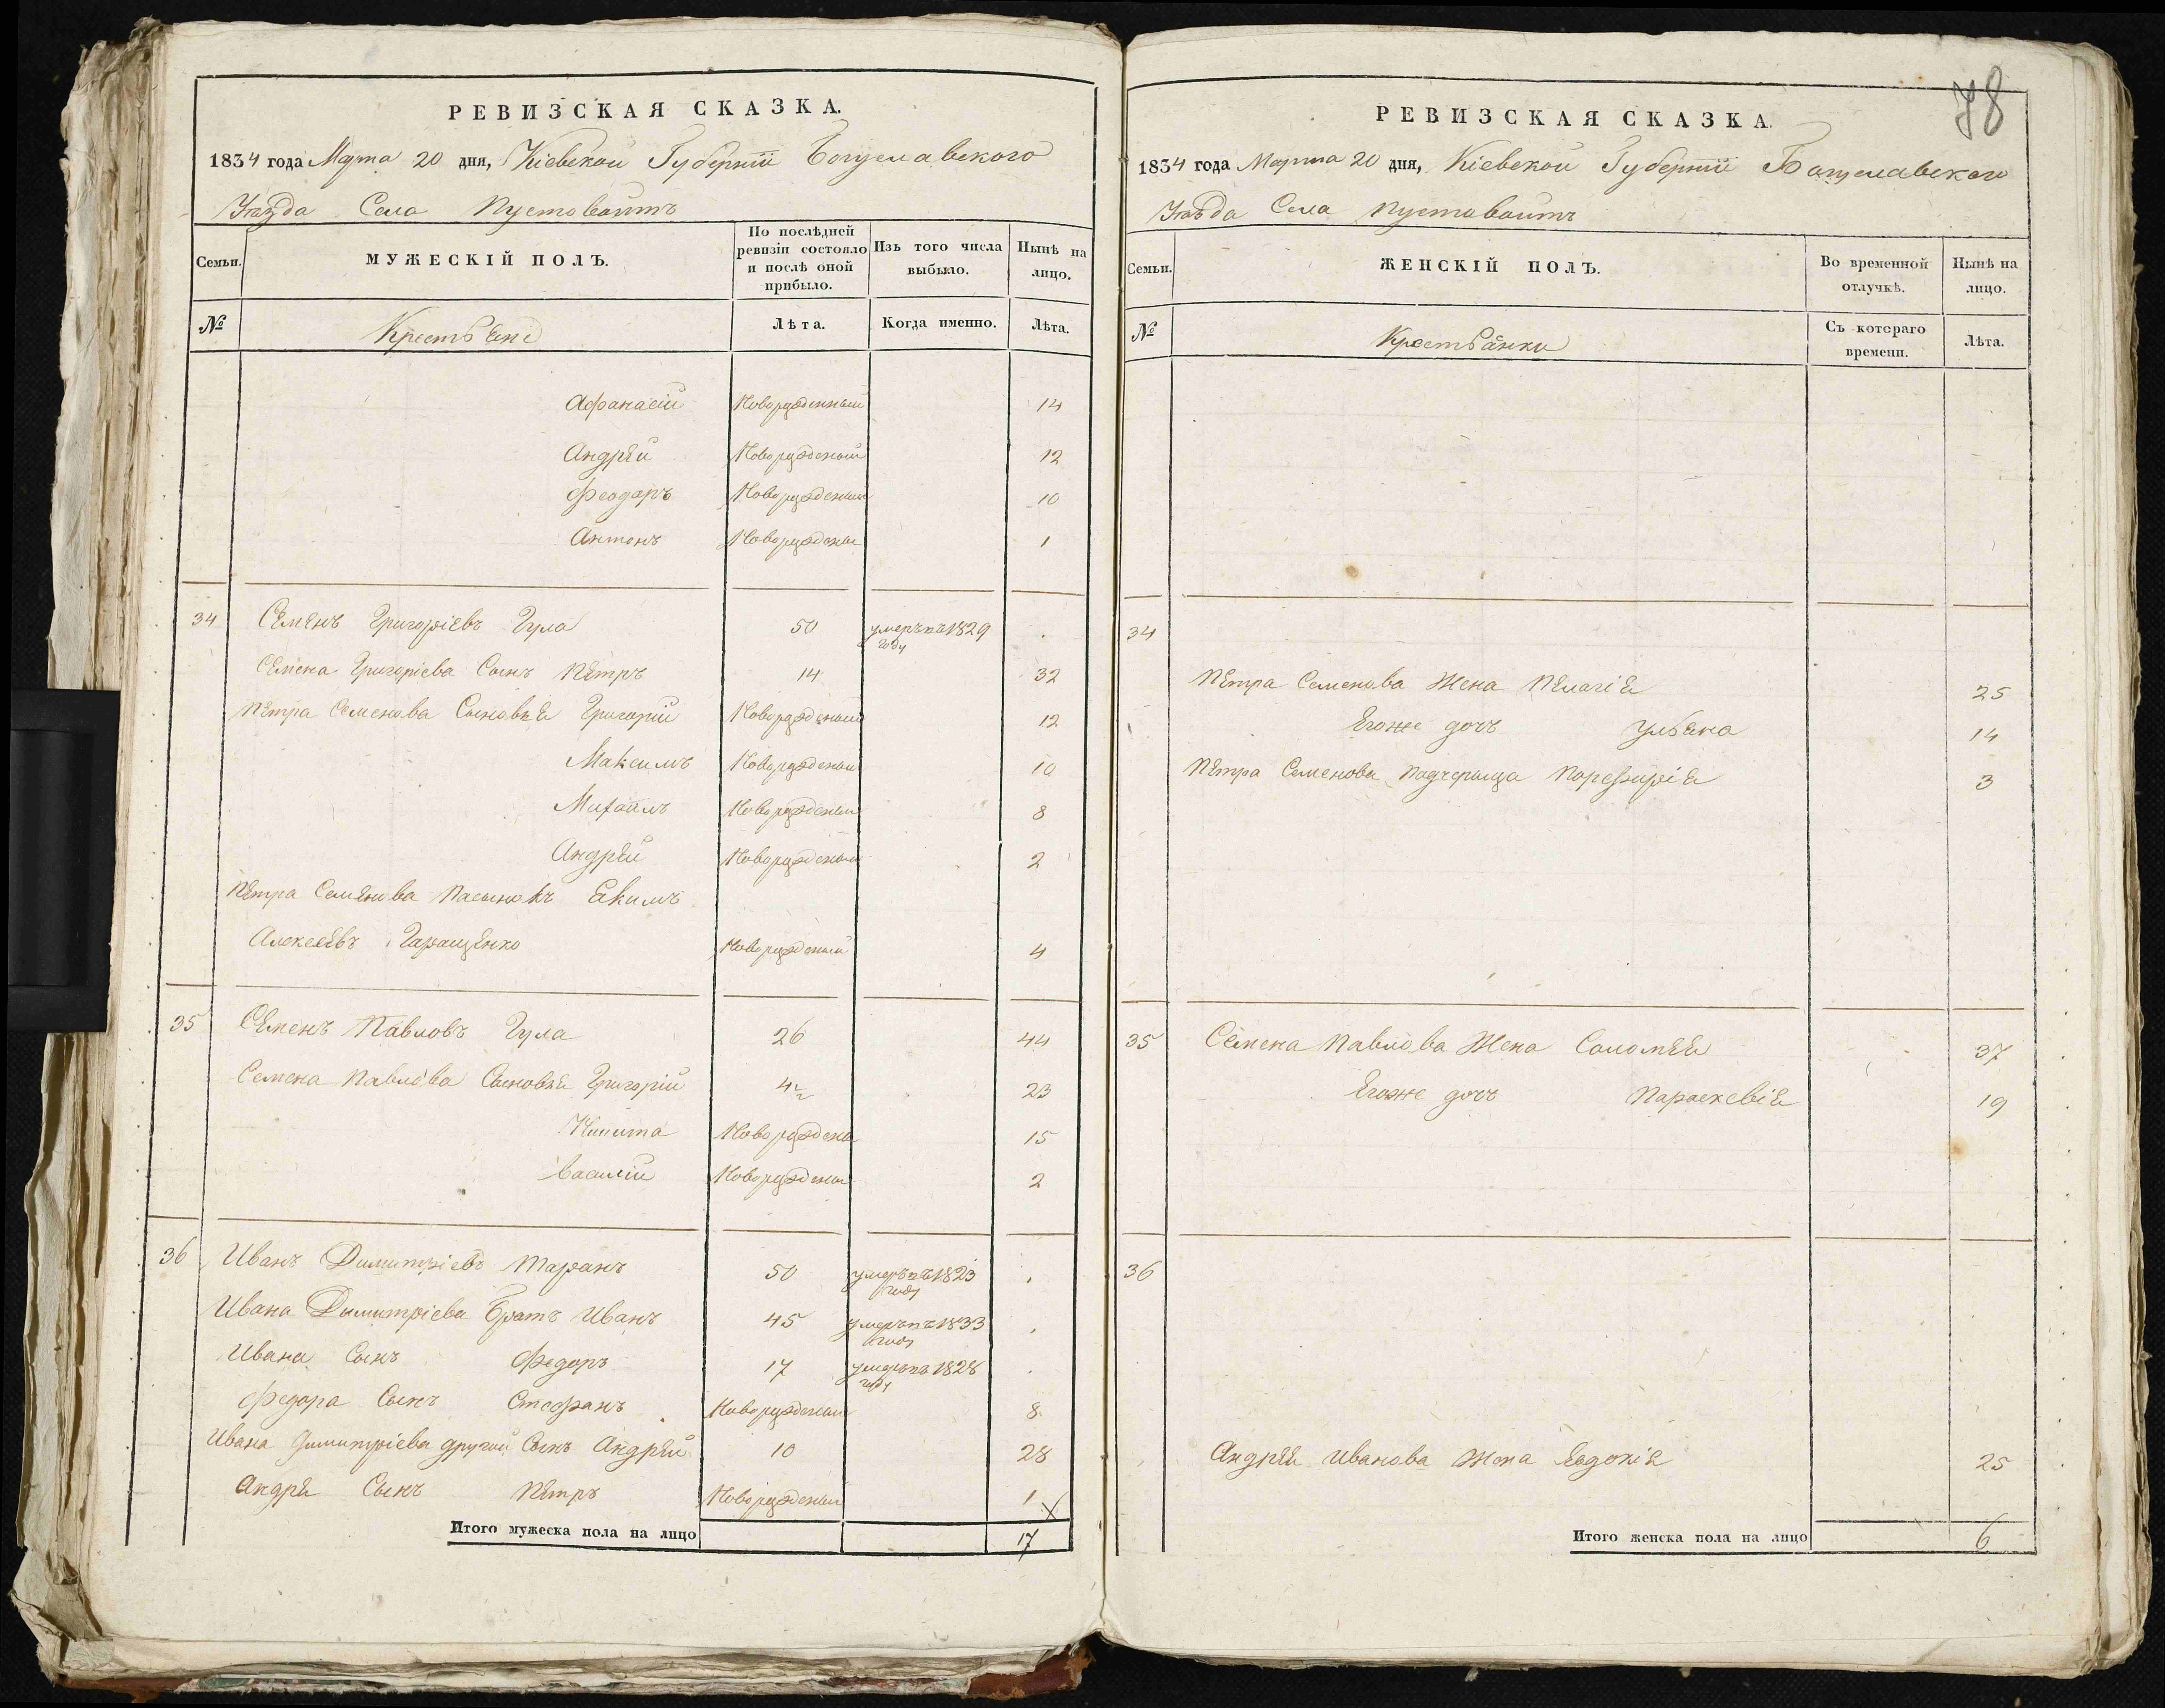 РЕВИЗСКАЯ СКАЗКА.
1834 года Марта 20 дня, Кіевской Губерніи Богуславского
Уѣзда Села Пустовойтъ
Семьи.
МУЖЕСКІЙ ПОЛЪ.
По послѣдней ревизіи состояло и послѣ оной прибыло.
Изъ того числа выбыло.
Нынѣ на лицо.
№
Крестьяне
Лѣта.
Когда именно.
Лѣта.
Афанасій Новорожденный 14
Андрѣй Новорожденый 12
Феодоръ Новорожденый 10
Антонъ Новорожденый 1
34 Семенъ Григоріевъ Гула 50 умеръ въ 1829 году
Семена Григоріева Сынъ Петръ 14 32
Петра Семенова Сыновья Григорій Новорожденый 12
Максимъ Новорожденый 10
Михаилъ Новорожденый 8
Андрѣй Новорожденый 2
Петра Семенова Пасынокъ Екимъ
Алексеевъ Гаращенко Новорожденый 4
35 Семенъ Павловъ Гула 26 44
Семена Павлова Сыновья Григорій 4½ 23
Никита Новорожденый 15
Василій Новорожденый 2
36 Иванъ Димитріевъ Таранъ 50 умеръ въ 1823 году
Ивана Димитріева Братъ Иванъ 45 умеръ въ 1833 году
Ивана Сынъ Федоръ 17 умеръ въ 1828 году
Федора Сынъ Стефанъ Новорожденый 8
Ивана Димитріева другой Сынъ Андрѣй 10 28
Андрея Сынъ Петръ Новорожденый 1
Итого мужеска пола на лицо 17
78
РЕВИЗСКАЯ СКАЗКА.
1834 года Марта 20 дня, Кіевской Губерніи Богуславского
Уѣзда Села Пустовойтъ
Семьи.
ЖЕНСКІЙ ПОЛЪ.
Во временной отлучкѣ.
Нынѣ на лицо.
№
Крестьянки
Съ котораго времени.
Лѣта.
34
Петра Семенова Жена Пелагія 25
Егоже дочь Ульяна 14
Петра Семенова Падчерыца Порфирія 3
35 Семена Павлова Жена Соломѣя 37
Егоже дочь Параскевія 19
36
Андрѣя Иванова Жена Евдокія 25
Итого женска пола на лицо 6